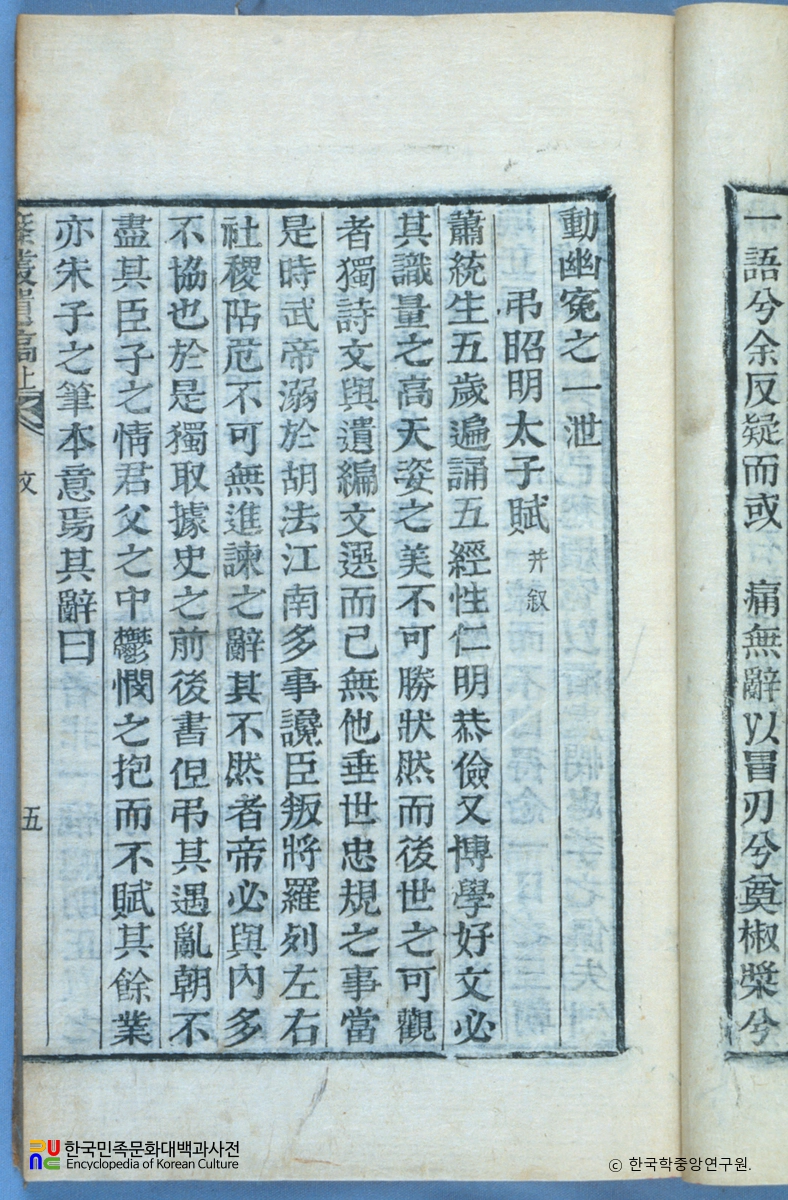 一語兮余反疑而或 痛無辭以冒刃兮奠椒漿兮
動幽寃之一泄
弔昭明太子賦 并叙
蕭統生五歲遍誦五經性仁明恭儉又博學好文必
其識量之高天姿之美不可勝狀然而後世之可觀
者獨詩文與遺編文選而已無他垂世忠規之事當
是時武帝溺於胡法江南多事讒臣叛將羅列左右
社稷阽危不可無進諫之辭其不然者帝必與內多
不協也於是獨取據史之前後書但弔其遇亂朝不
盡其臣子之情君父之中鬱憫之抱而不賦其餘業
亦朱子之筆本意焉其辭曰
叢遺稿上 文 五
한국민족문화대백과사전
Encyclopedia of Korean Culture
© 한국학중앙연구원.